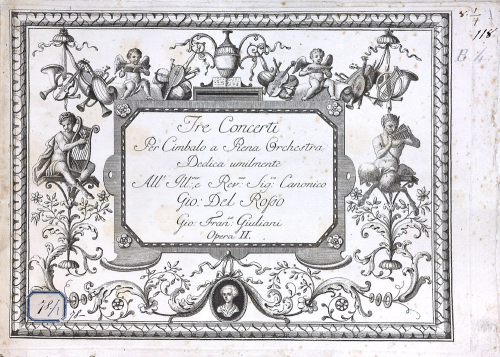 Tre Concerti
Per Cimbalo a Piena Orchestra
Dedica umilmente
All' Ill.mo e Rev.mo Sig.r Canonico
Gio: Del Rosso
Gio: Fran.co Giuliani
Opera II.
118